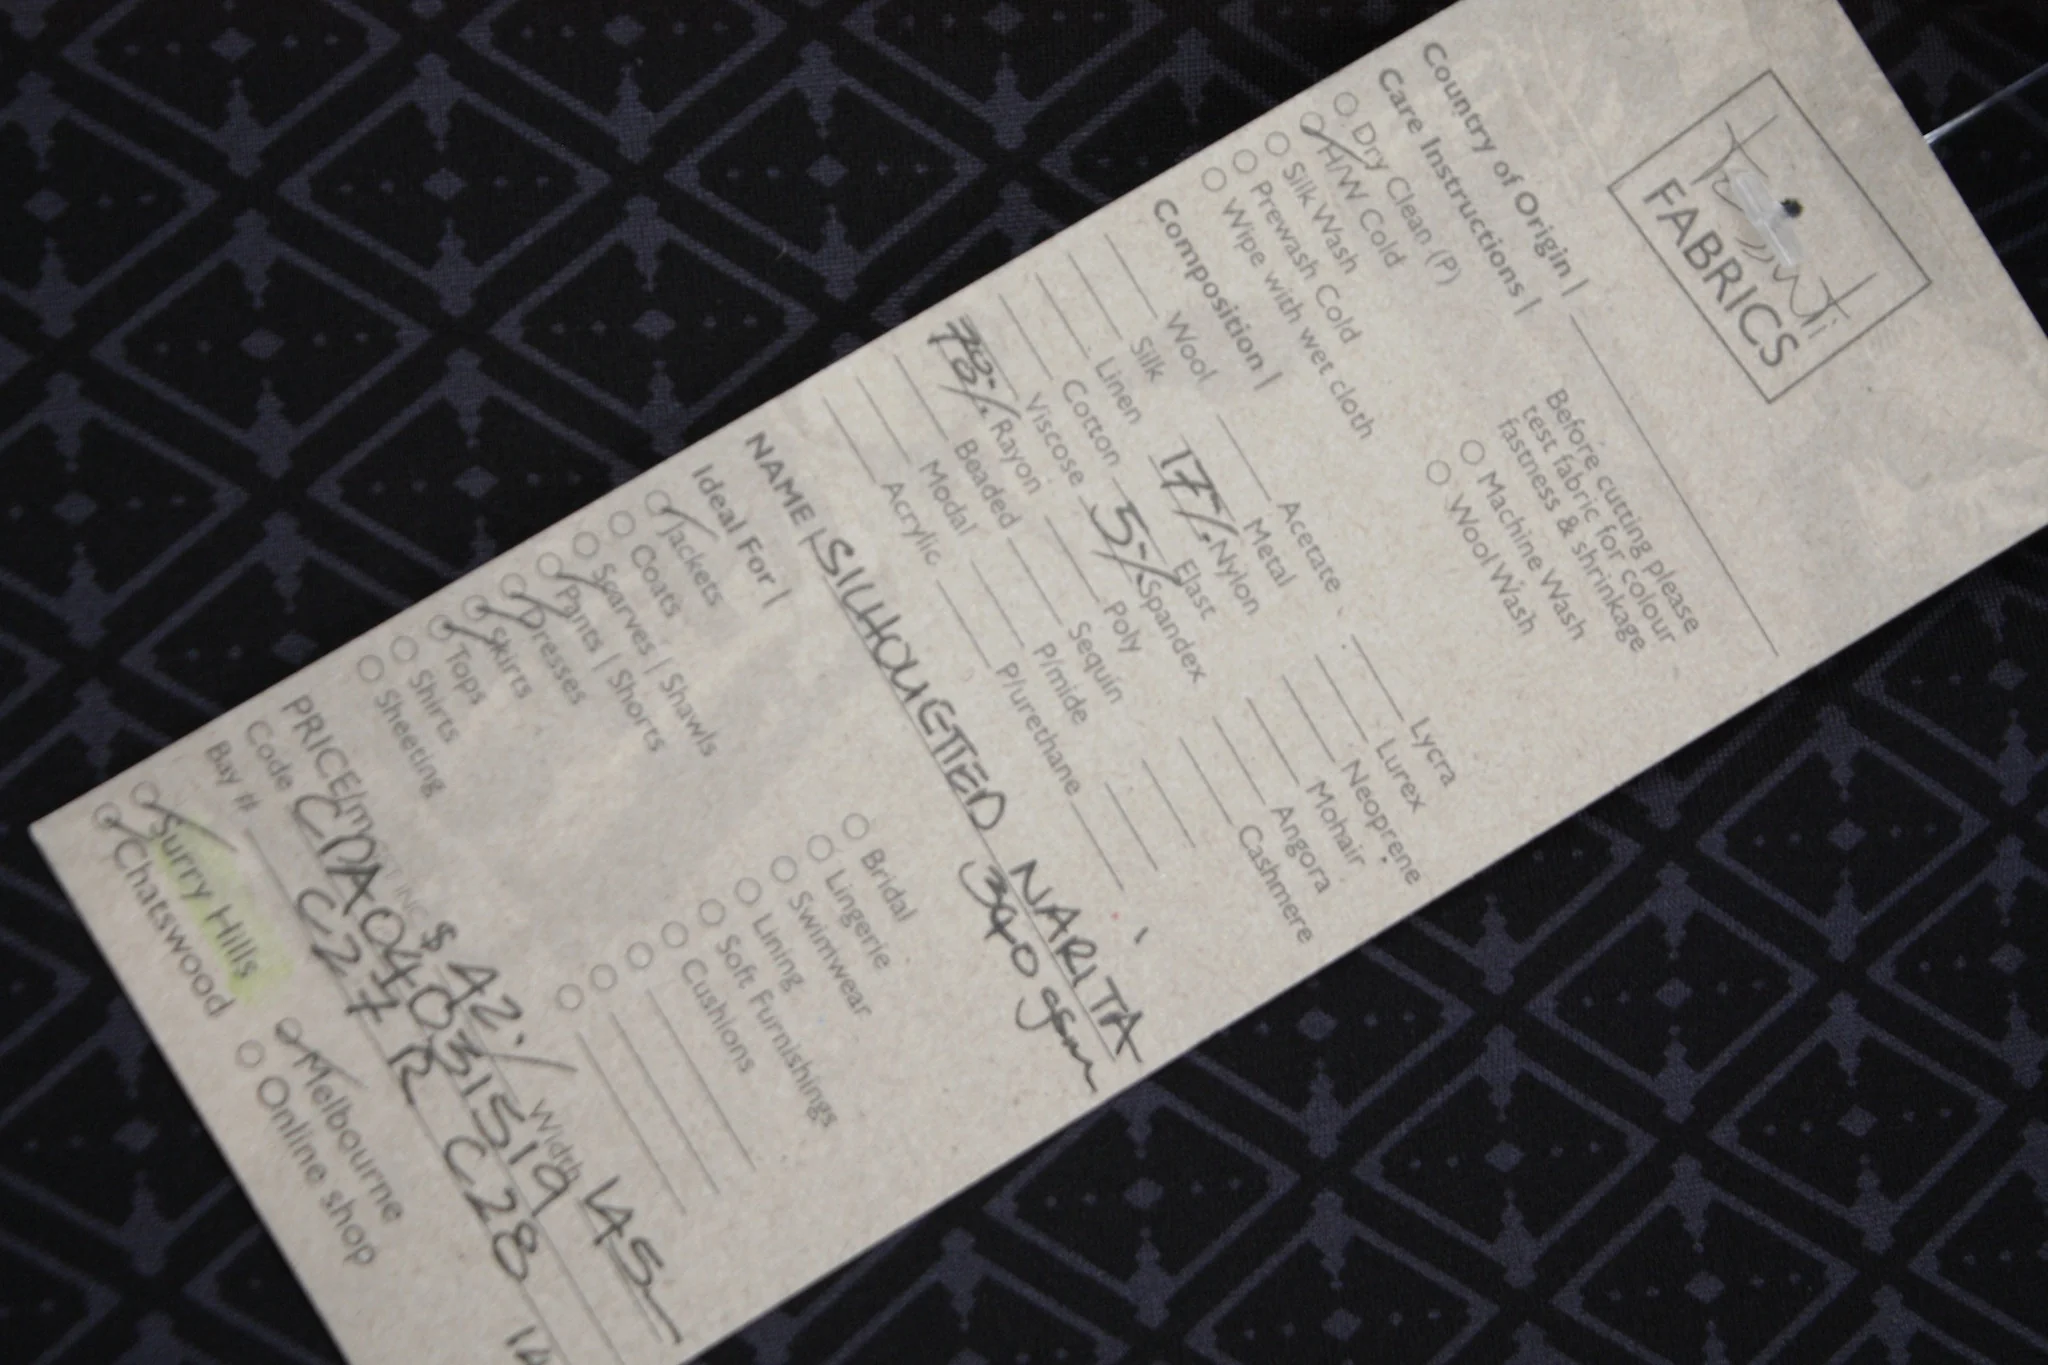 FABRICS
Country of Origin |
Care Instructions |
Dry Clean (P)
H/W Cold
Silk Wash
Prewash Cold
Wipe with wet cloth
Before cutting please
test fabric for colour
fastness & shrinkage
Machine Wash
Wool Wash
Composition |
Wool
Silk
Linen
Cotton
Viscose
78% Rayon
Beaded
Modal
Acrylic
Acetate
Metal
17% Nylon
Elast
5% Spandex
Poly
Sequin
P/mide
P/urethane
Lycra
Lurex
Neoprene
Mohair
Angora
Cashmere
NAME | SILHOUETTED NARITA
340 gsm
Ideal For |
Jackets
Coats
Scarves | Shawls
Pants | Shorts
Dresses
Skirts
Tops
Shirts
Sheeting
Bridal
Lingerie
Swimwear
Lining
Soft Furnishings
Cushions
PRICE/m $42. Width 145
Code CNA04031519
Bay # C27 R C28
Surry Hills
Chatswood
Melbourne
Online shop